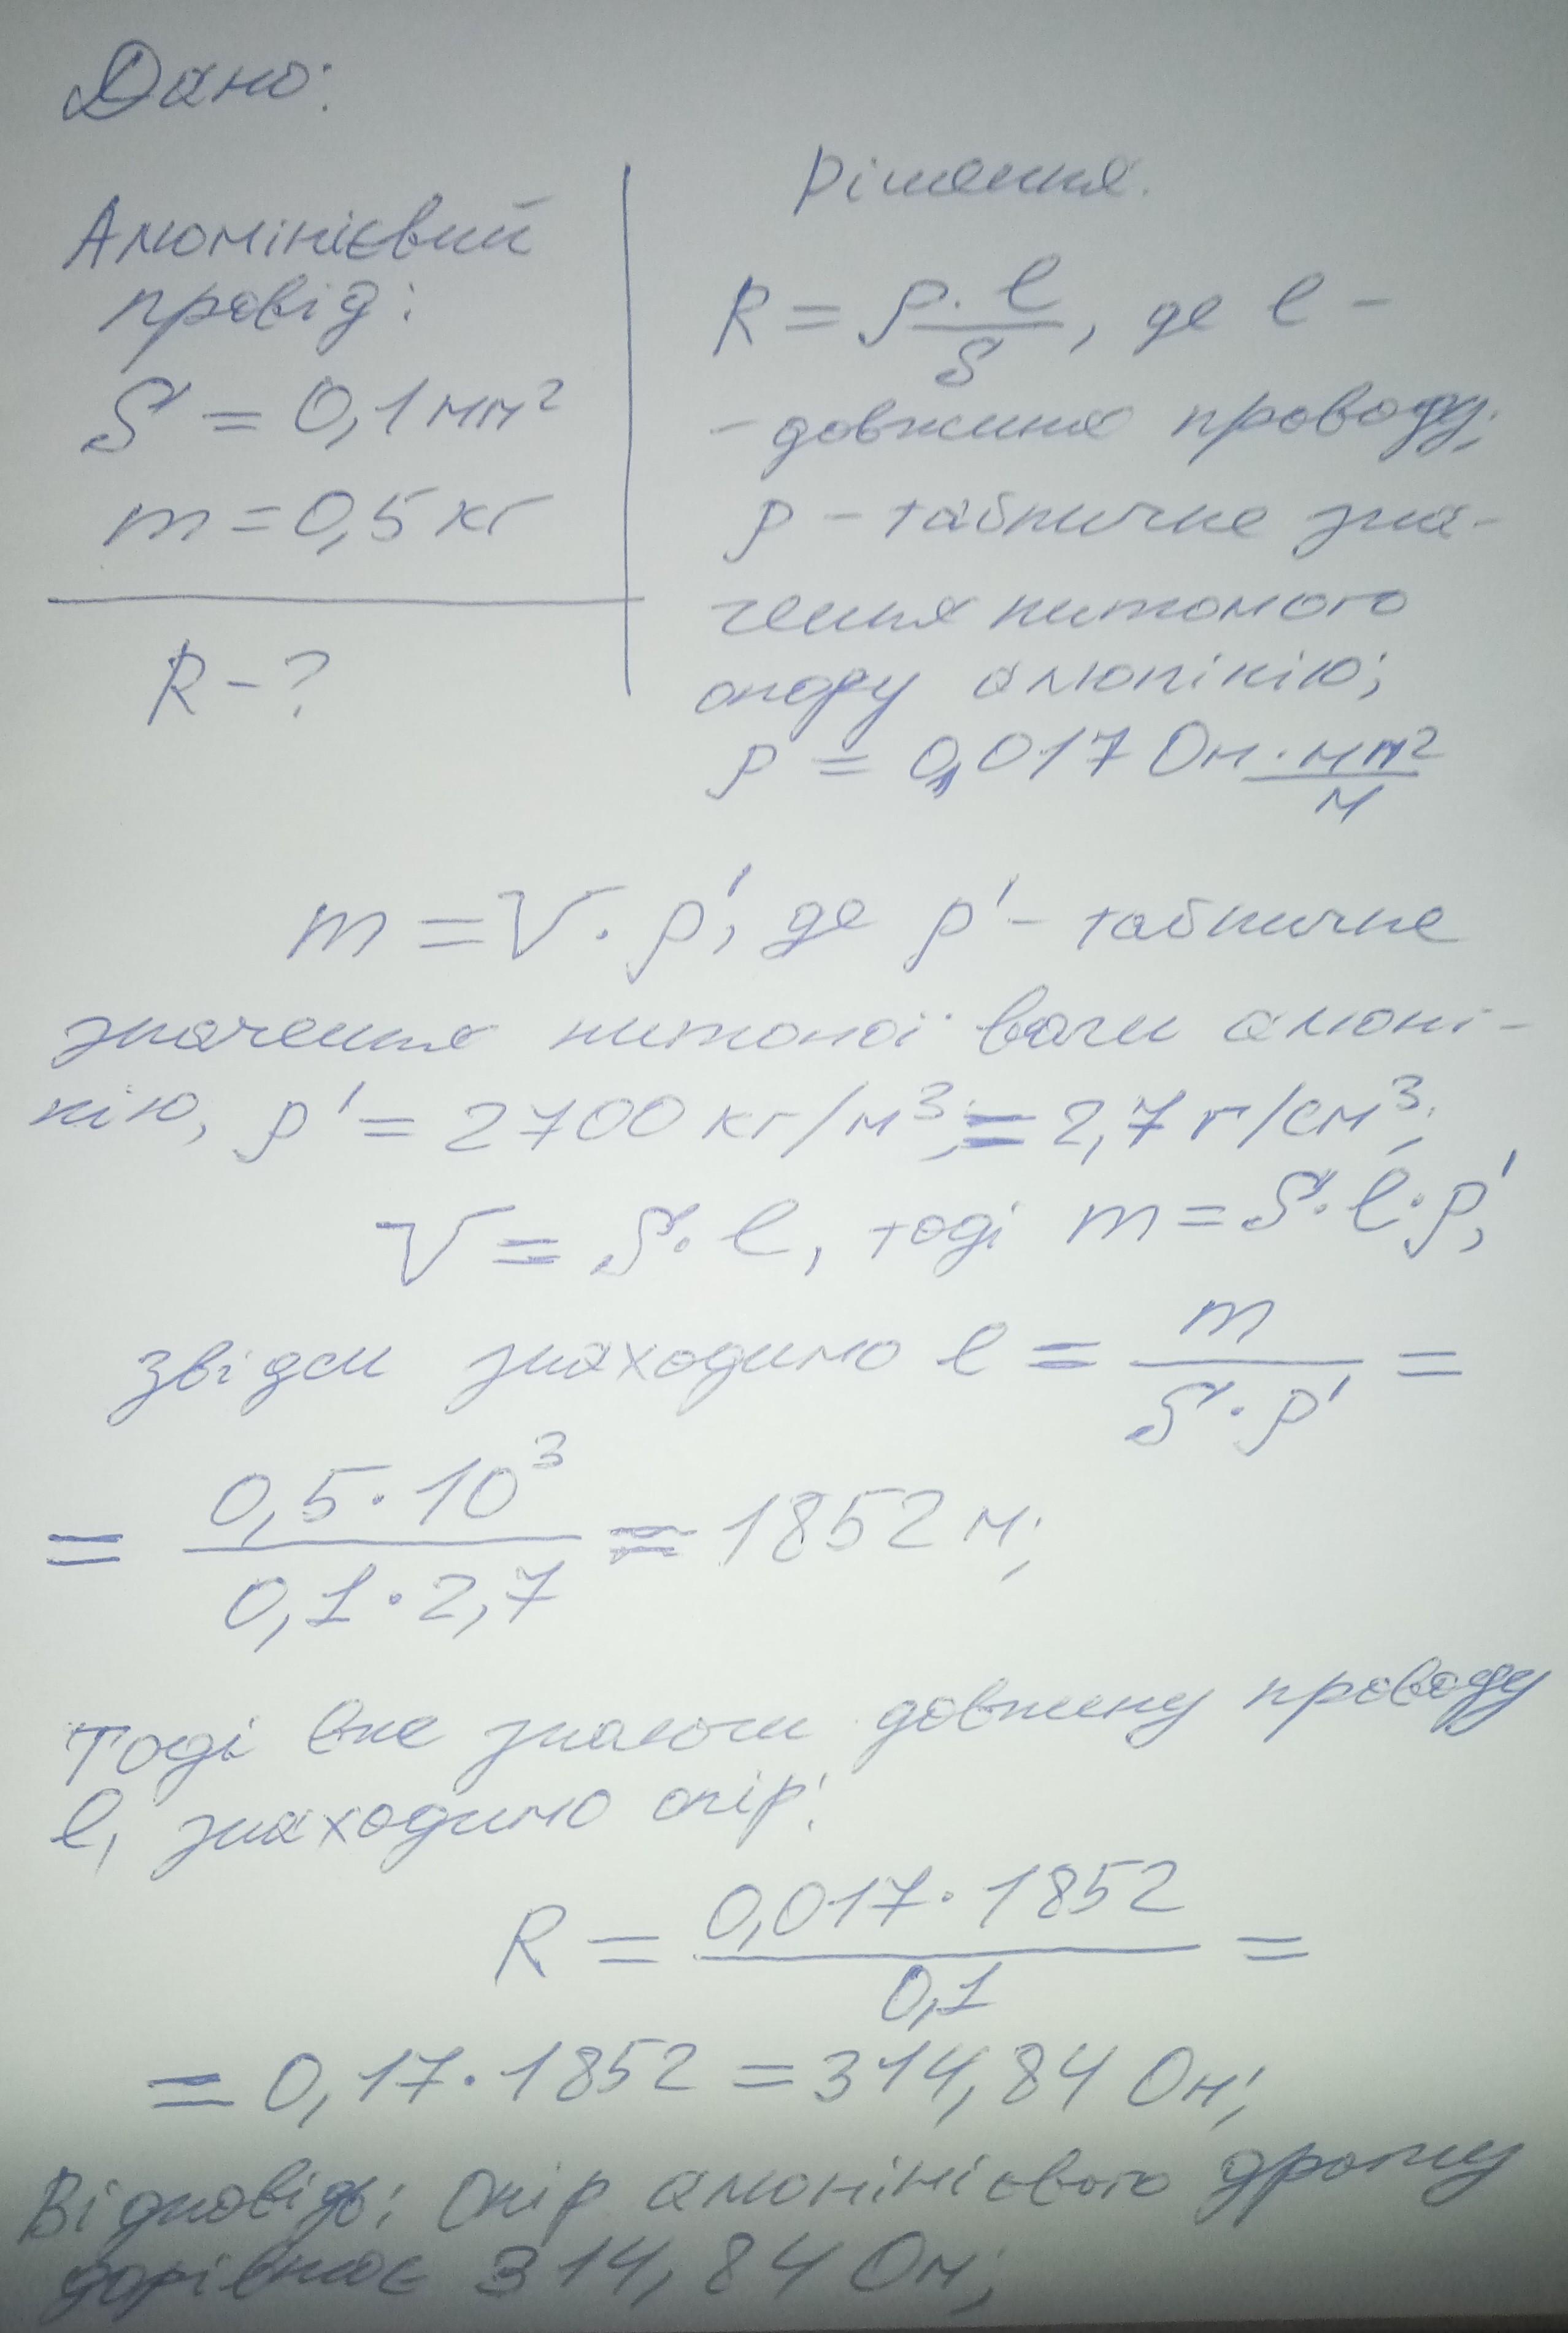 Дано:
Алюмінієвий
провід:
S = 0,1 мм²
m = 0,5 кг
R - ?
Рішення.
R = ρ · l / S, де l -
- довжина проводу;
ρ - табличне зна-
чення питомого
опору алюмінію;
ρ = 0,017 Ом · мм² / м
m = V · ρ', де ρ' - табличне
значення питомої ваги алюмі-
нію, ρ' = 2700 кг/м³; = 2,7 г/см³;
V = S · l, тоді m = S · l · ρ',
звідси знаходимо l = m / S · ρ' =
= 0,5 · 10³ / 0,1 · 2,7 = 1852 м;
Тоді вже знаючи довжину проводу
l, знаходимо опір:
R = 0,017 · 1852 / 0,1 =
= 0,17 · 1852 = 314,84 Ом;
Відповідь: Опір алюмінієвого дроту
дорівнює 314,84 Ом;